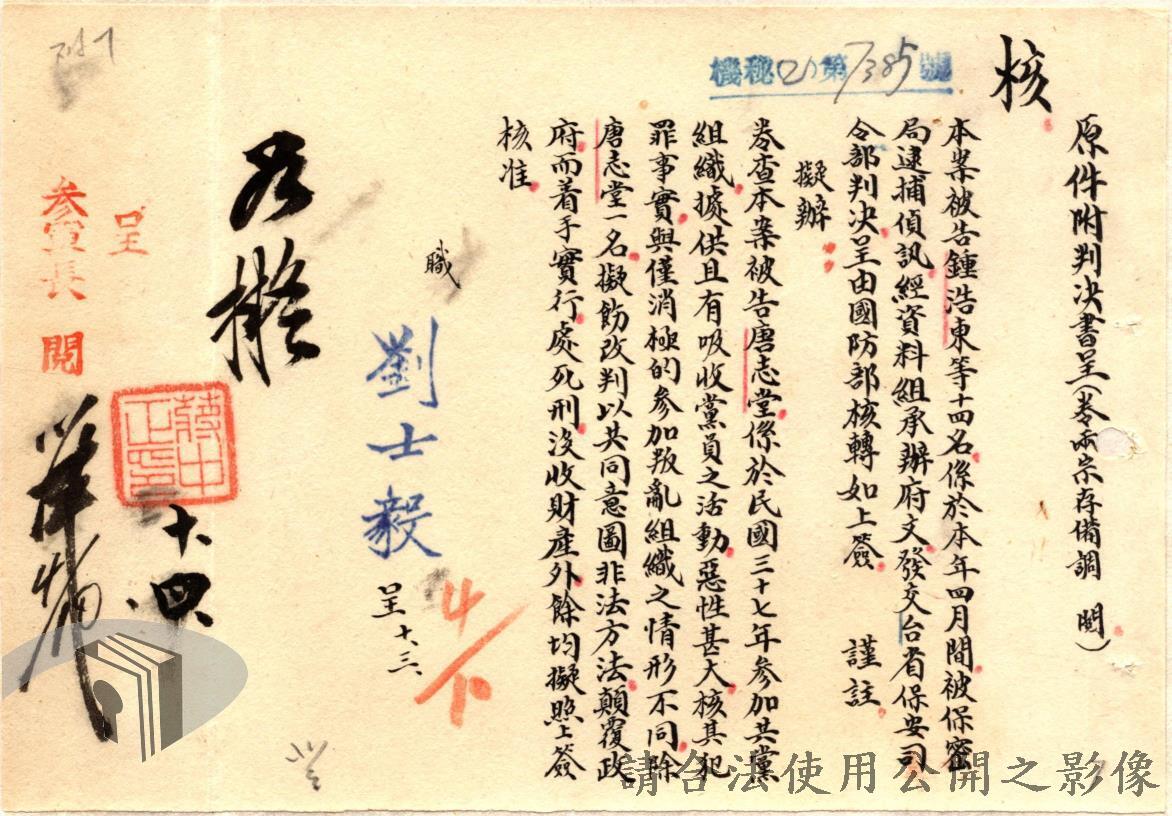 原件附判决書呈（卷兩宗存備調 閱）
核
本案被告鍾浩東等十四名係於本年四月間被保密
局逮捕偵訊經資料組承辦府文發交台省保安司
令部判决呈由國防部核轉如上簽 謹註
擬辦：
卷查本案被告唐志堂係於民國三十七年參加共黨
組織據供且有吸收黨員之活動惡性甚大核其犯
罪事實與僅消極的參加叛亂組織之情形不同除
唐志堂一名擬飭改判以共同意圖非法方法顛覆政
府而着手實行處死刑沒收財產外餘均擬照上簽
核准
機秘(乙)第7385號
職 劉士毅 呈 十、三、
4/10
如擬
蔣中正印
十、四、
呈
參軍長 閱
附1
請合法使用公開之影像